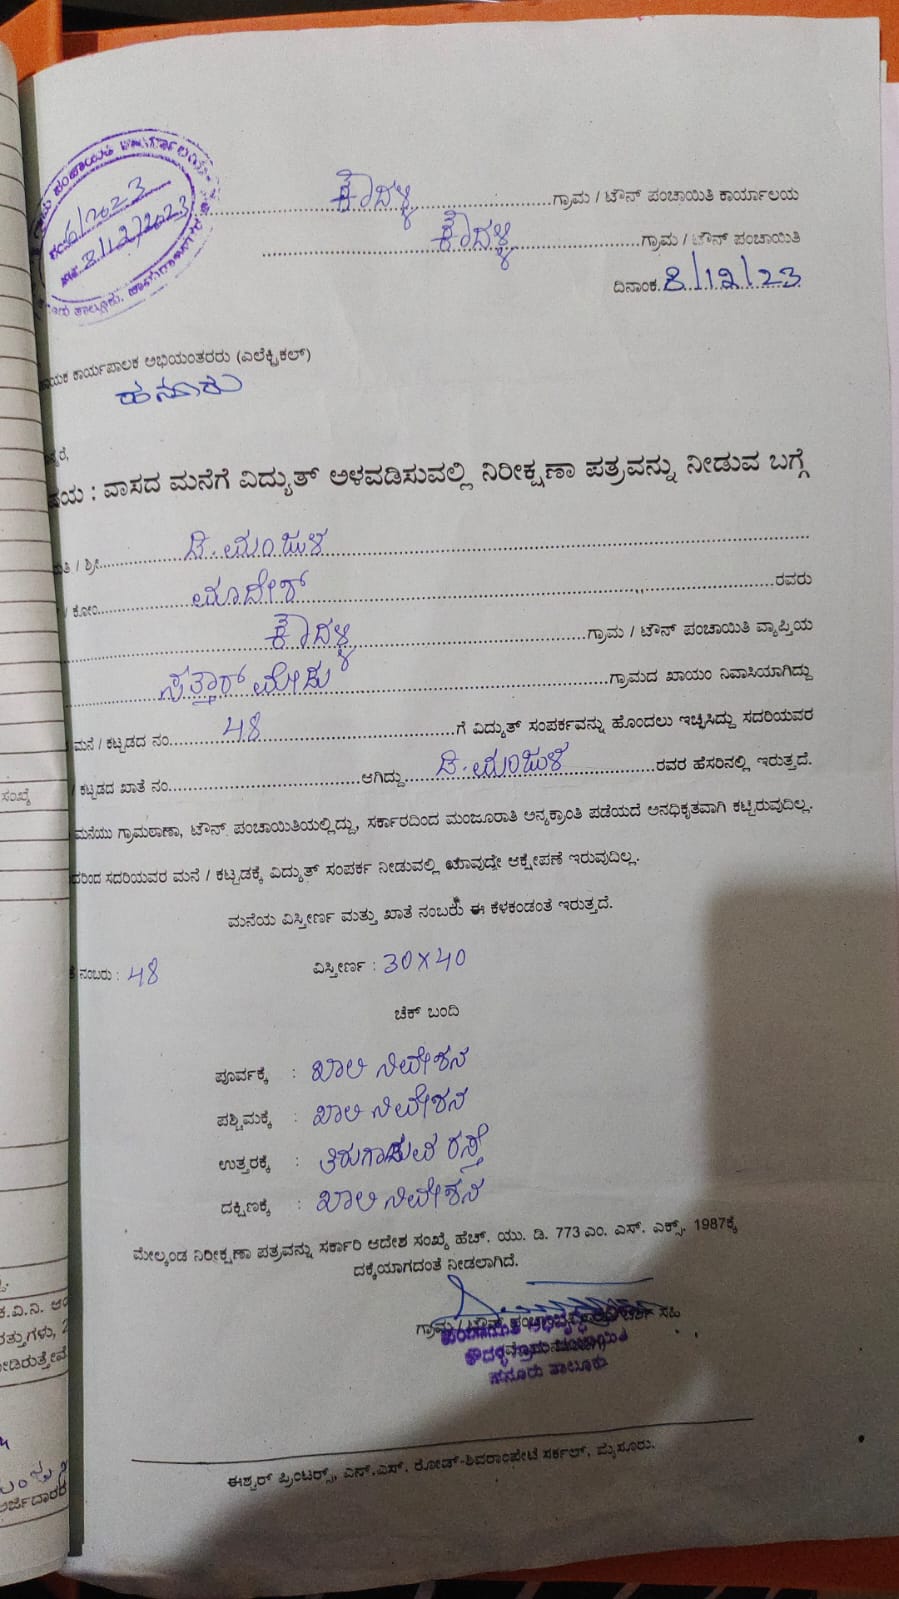 ಗ್ರಾಮ ಪಂಚಾಯಿತಿ ಕಾರ್ಯಾಲಯ
6/2023
8/12/2023
ತಾಲ್ಲೂಕು, ಚಾಮರಾಜನಗರ
ಕೌದಳ್ಳಿ ಗ್ರಾಮ / ಟೌನ್ ಪಂಚಾಯಿತಿ ಕಾರ್ಯಾಲಯ
ಕೌದಳ್ಳಿ ಗ್ರಾಮ / ಟೌನ್ ಪಂಚಾಯಿತಿ
ದಿನಾಂಕ 8/12/23
ಕಾರ್ಯಪಾಲಕ ಅಭಿಯಂತರರು (ಎಲೆಕ್ಟ್ರಿಕಲ್)
ಹನೂರು
: ವಾಸದ ಮನೆಗೆ ವಿದ್ಯುತ್ ಅಳವಡಿಸುವಲ್ಲಿ ನಿರೀಕ್ಷಣಾ ಪತ್ರವನ್ನು ನೀಡುವ ಬಗ್ಗೆ
/ ಶ್ರೀ ಡಿ. ಮಂಜುಳ
/ ಕೋಂ ಮಾದೇಶ್ ರವರು
ಕೌದಳ್ಳಿ ಗ್ರಾಮ / ಟೌನ್ ಪಂಚಾಯಿತಿ ವ್ಯಾಪ್ತಿಯ
ಸತ್ತಾರ್ ಮೇಡು ಗ್ರಾಮದ ಖಾಯಂ ನಿವಾಸಿಯಾಗಿದ್ದು
ಮನೆ / ಕಟ್ಟಡದ ನಂ. 48 ಗೆ ವಿದ್ಯುತ್ ಸಂಪರ್ಕವನ್ನು ಹೊಂದಲು ಇಚ್ಛಿಸಿದ್ದು ಸದರಿಯವರ
/ ಕಟ್ಟಡದ ಖಾತೆ ನಂ. ಆಗಿದ್ದು ಡಿ. ಮಂಜುಳ ರವರ ಹೆಸರಿನಲ್ಲಿ ಇರುತ್ತದೆ.
ಮನೆಯು ಗ್ರಾಮಠಾಣಾ, ಟೌನ್ ಪಂಚಾಯಿತಿಯಲ್ಲಿದ್ದು, ಸರ್ಕಾರದಿಂದ ಮಂಜೂರಾತಿ ಅನ್ಯಕ್ರಾಂತಿ ಪಡೆಯದೆ ಅನಧಿಕೃತವಾಗಿ ಕಟ್ಟಿರುವುದಿಲ್ಲ.
ಸದರಿಯವರ ಮನೆ / ಕಟ್ಟಡಕ್ಕೆ ವಿದ್ಯುತ್ ಸಂಪರ್ಕ ನೀಡುವಲ್ಲಿ ಯಾವುದೇ ಆಕ್ಷೇಪಣೆ ಇರುವುದಿಲ್ಲ.
ಮನೆಯ ವಿಸ್ತೀರ್ಣ ಮತ್ತು ಖಾತೆ ನಂಬರು ಈ ಕೆಳಕಂಡಂತೆ ಇರುತ್ತದೆ.
ನಂಬರು : 48 ವಿಸ್ತೀರ್ಣ : 30X40
ಚೆಕ್ ಬಂದಿ
ಪೂರ್ವಕ್ಕೆ : ಖಾಲಿ ನಿವೇಶನ
ಪಶ್ಚಿಮಕ್ಕೆ : ಖಾಲಿ ನಿವೇಶನ
ಉತ್ತರಕ್ಕೆ : ತಿರುಗಾಡುವ ರಸ್ತೆ
ದಕ್ಷಿಣಕ್ಕೆ : ಖಾಲಿ ನಿವೇಶನ
ಮೇಲ್ಕಂಡ ನಿರೀಕ್ಷಣಾ ಪತ್ರವನ್ನು ಸರ್ಕಾರಿ ಆದೇಶ ಸಂಖ್ಯೆ ಹೆಚ್. ಯು. ಡಿ. 773 ಎಂ. ಎಸ್. ಎಕ್ಸ್. 1987ಕ್ಕೆ
ದಕ್ಕೆಯಾಗದಂತೆ ನೀಡಲಾಗಿದೆ.
ಗ್ರಾಮ / ಟೌನ್ ಸಹಿ
ಪಂಚಾಯಿತಿ ಅಭಿವೃದ್ಧಿ
ಕೌದಳ್ಳಿ ಗ್ರಾಮ ಪಂಚಾಯಿತಿ
ಹನೂರು ತಾಲ್ಲೂಕು
ಈಶ್ವರ್ ಪ್ರಿಂಟರ್ಸ್, ಎನ್.ಎಸ್. ರೋಡ್-ಶಿವರಾಂಪೇಟೆ ಸರ್ಕಲ್, ಮೈಸೂರು.
ಸಂಖ್ಯೆ